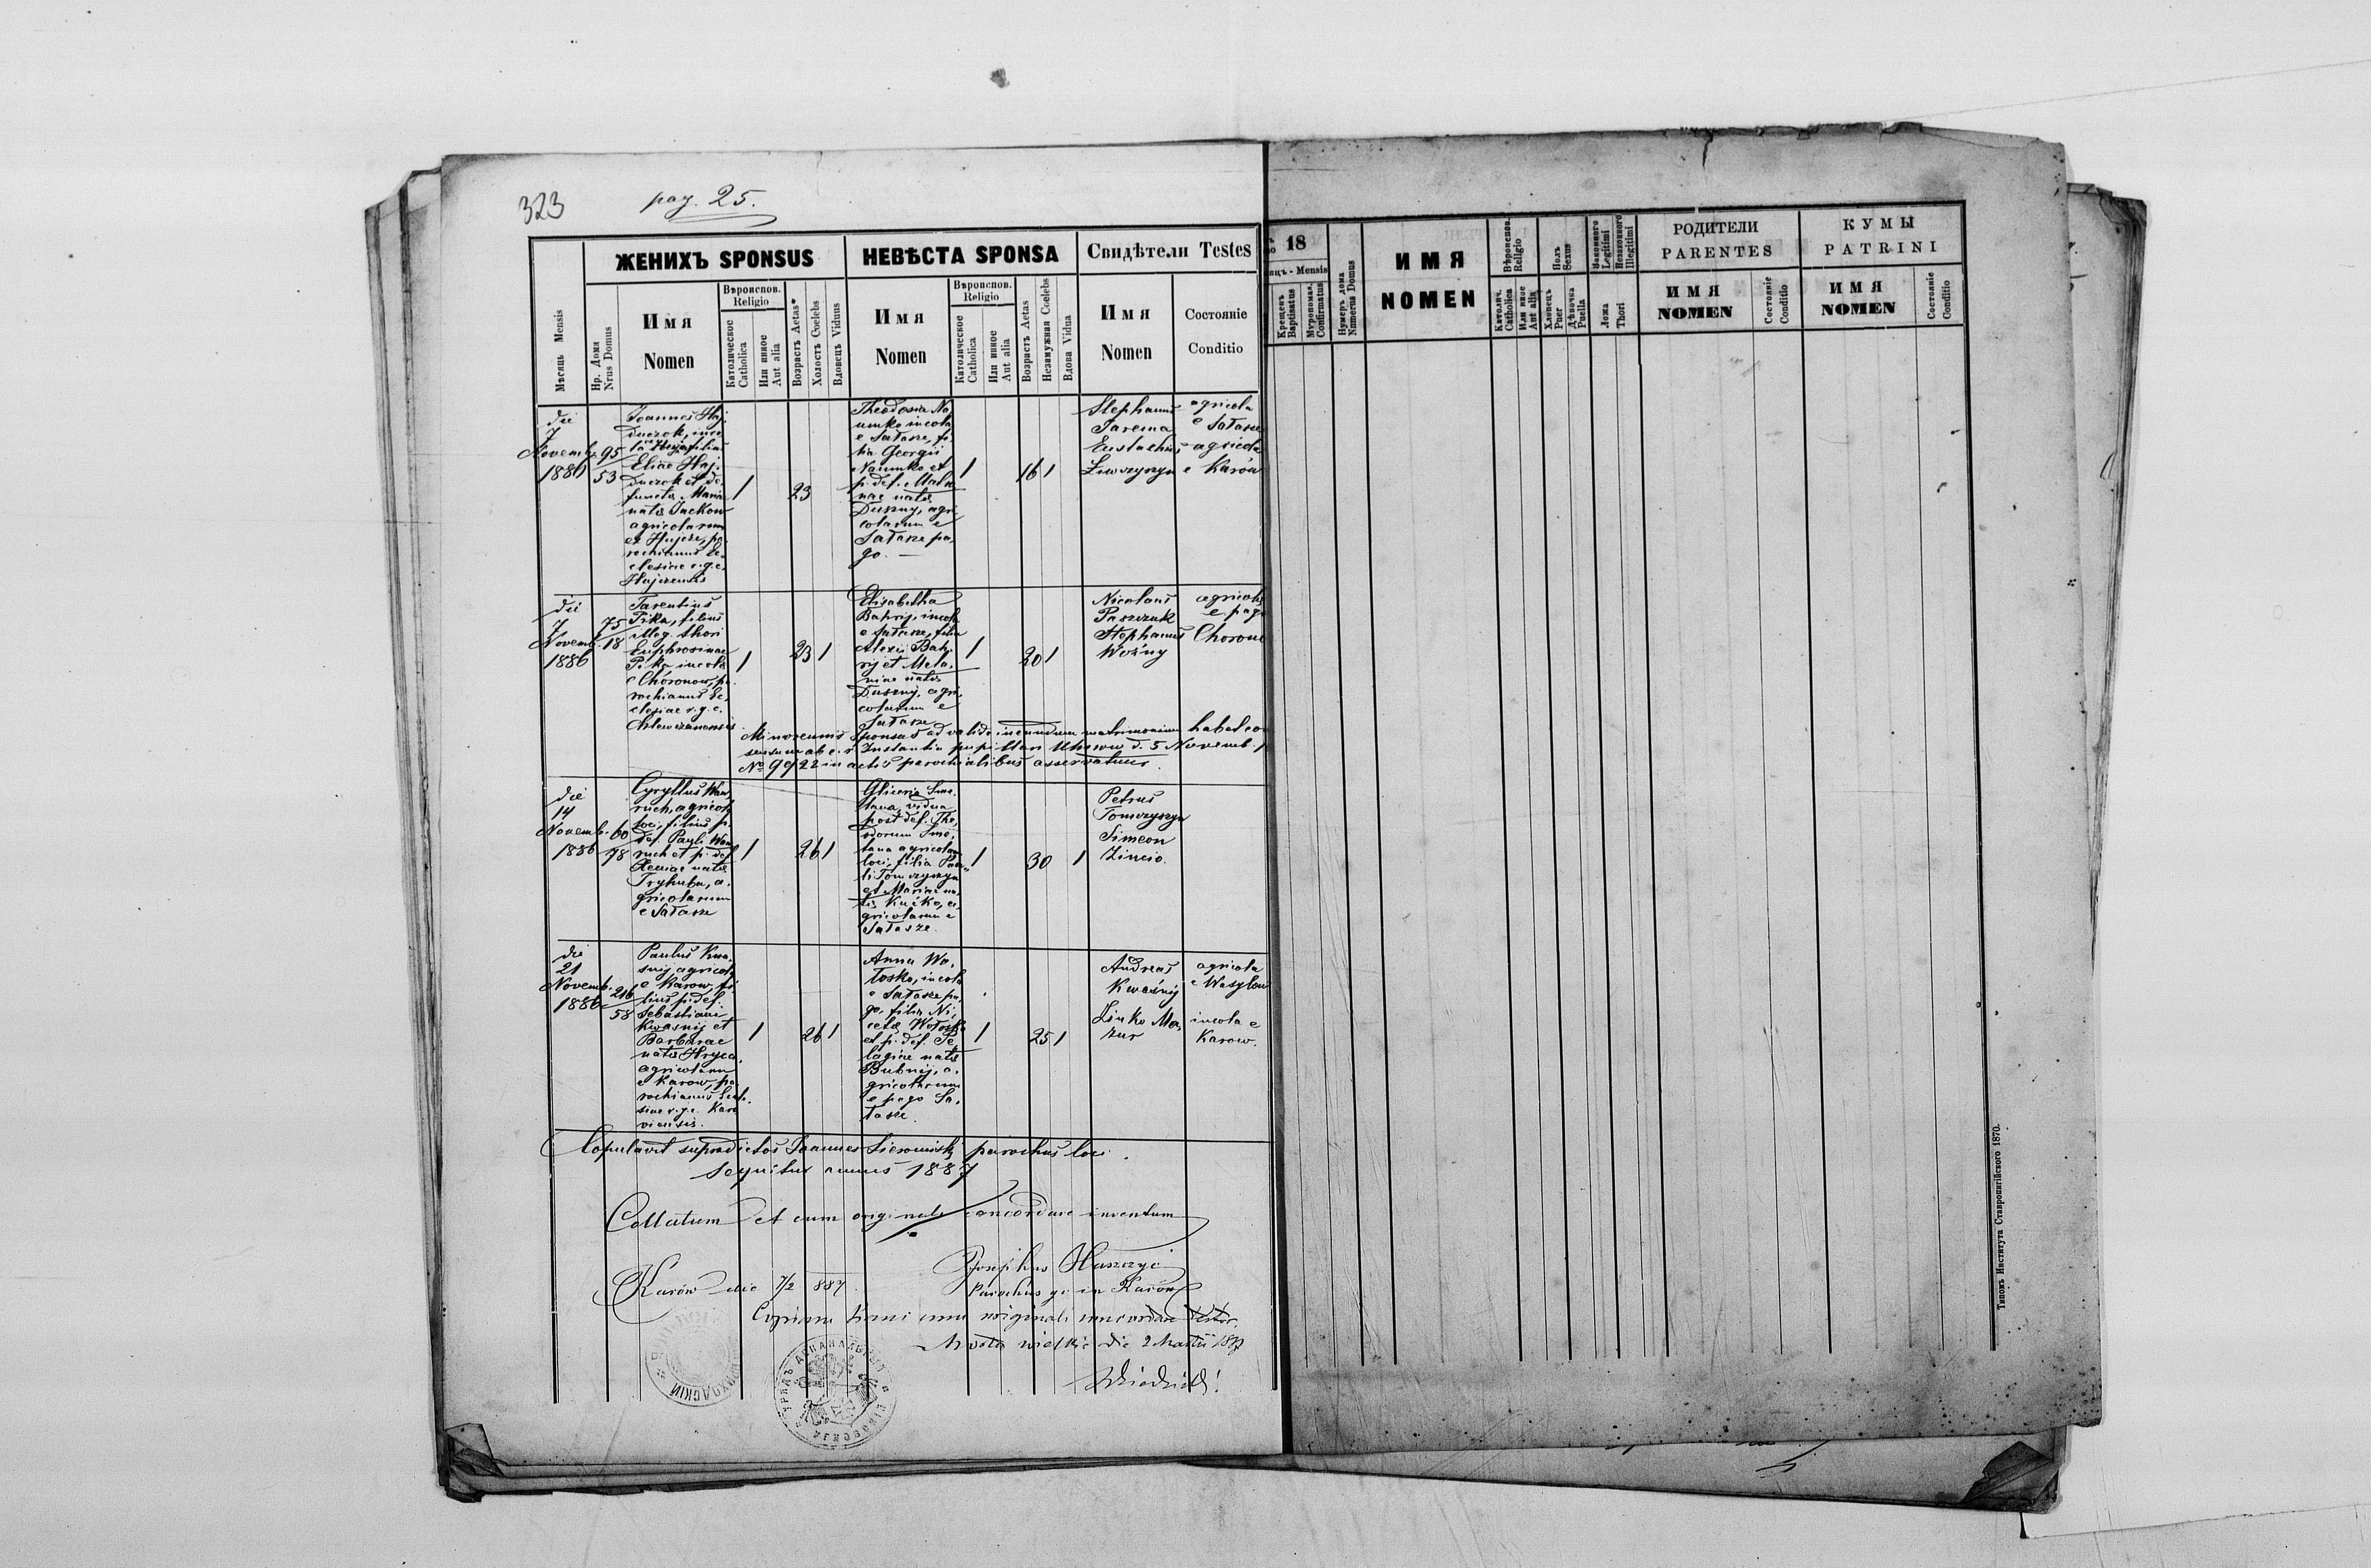 323
pag. 25.
ЖЕНИХЪ SPONSUS
НЕВѢСТА SPONSA
Свидѣтели Testes
Мѣсяць Mensis
Нр. Дома
Nrus Domus
Имя
Nomen
Вѣроиспов.
Religio
Католическое
Catholica
Или инное
Aut alia
Возрастъ Aetas
Холостъ Coelebs
Вдовецъ Viduus
Имя
Nomen
Вѣроиспов.
Religio
Католическое
Catholica
Или инное
Aut alia
Возрастъ Aetas
Незамужняя Coelebs
Вдова Vidua
Имя
Nomen
Состояніе
Conditio
die
7
Novemb.
1886
95
53
Joannes Haj
duczok, inco
la filius
Eliae Haj
duczok et de
functa Maria
nata Jackow
agricolarum
ex Hujcze, pa
rochianus Ec
clesiae r.g.c.
Hujczensis
1
23
Theodosia Na
umko incola
e Sałasze, fi
lia Georgii
Naumko et
p. def. Mala
niae nata
Duszny, agri
colarum e
Sałasze pa
go. —
1
16 1
Stephanus
Jarema
Eustachius
agricola
e Sałasze
agricola
e Karów
die
7
Novemb.
1886
75
18
Tarentius
Pika, filius
illeg. thori
Euphrosinae
Pika incola
e Choronow, pa
rochianus Ec
clesiae r.g.c.
1
23 1
Elisabetha
Bahrij, incola
e Sałasze, filia
Alexii Bah
rij et Mela
niae nata
Duszny, agri
colarum e
Sałasze
1
20 1
Nicolaus
Paszczuk
Stephanus
Woźny
agricola
e pago
Chorono
Minorennis Sponsa ad valide ineundum matrimonium habet con
sensum ab c. r. Instantia pupillari Uhnow d. 5 Novemb. 1
No 9922 in actis parochialibus asservatur.
die
14
Novemb.
1886
60
78
Cyryllus Waw
ruch, agricola
loci, filius p.
def. Pauli Waw
ruch et p. def
Xeniae nata
Tryhuba, a
gricolarum
e Sałasze
1
26 1
Gliceria Sme
tana, vidua
post def. The
odorum Sme
tana agricolam
loci, filia Pau
li Tomczyszyn
et Mariae na
ta Kućko, a
gricolarum e
Sałasze.
1
30 1
Petrus
Tomczyszyn
Simeon
die
21
Novemb.
1886
216
58
Paulus Kwa
snij agricola
e Karow, fi
lius p. def.
Sebastiani
Kwasnij et
Barbarae
nata Hryca
agricolarum
e Karow, pa
rochianus Eccle
siae r.g.c. Karo
viensis.
1
26 1
Anna Wo
łosko, incola
e Sałasze pa
go, filia Ni
ceta Wołosko
et p. def. Pe
lagiae nata
Bubnij, a
gricolarum
e pago Sa
łasze
1
25 1
Andreas
Kwaśnij
Zinko Ma
zur
agricola
e Wasylow
incola e
Karow.
Copulavit supradictos Joannes parochus loci.
Sequitur annus 1887
Collatum et cum originali concordare inventum
Karów die 7/2 887.
Josephus
Parochus gr. in Karów
Copiam hanc cum originali concordare testor.
Mosta wielkie die 2 Martii 1887
18
Mensis
Крещенъ
Baptisatus
Мѵропомаз.
Confirmatus
Нумеръ дома
Numerus Domus
ИМЯ
NOMEN
Вѣроиспов.
Religio
Католич.
Catholica
Или иное
Aut alia
Полъ
Sexus
Хлопецъ
Puer
Дѣвочка
Puella
Законного
Legitimi
Незаконного
Illegitimi
Ложа
Thori
РОДИТЕЛИ
PARENTES
ИМЯ
NOMEN
Состояніе
Conditio
КУМЫ
PATRINI
ИМЯ
NOMEN
Состояніе
Conditio
Типомъ Института Ставропигійского 1870.